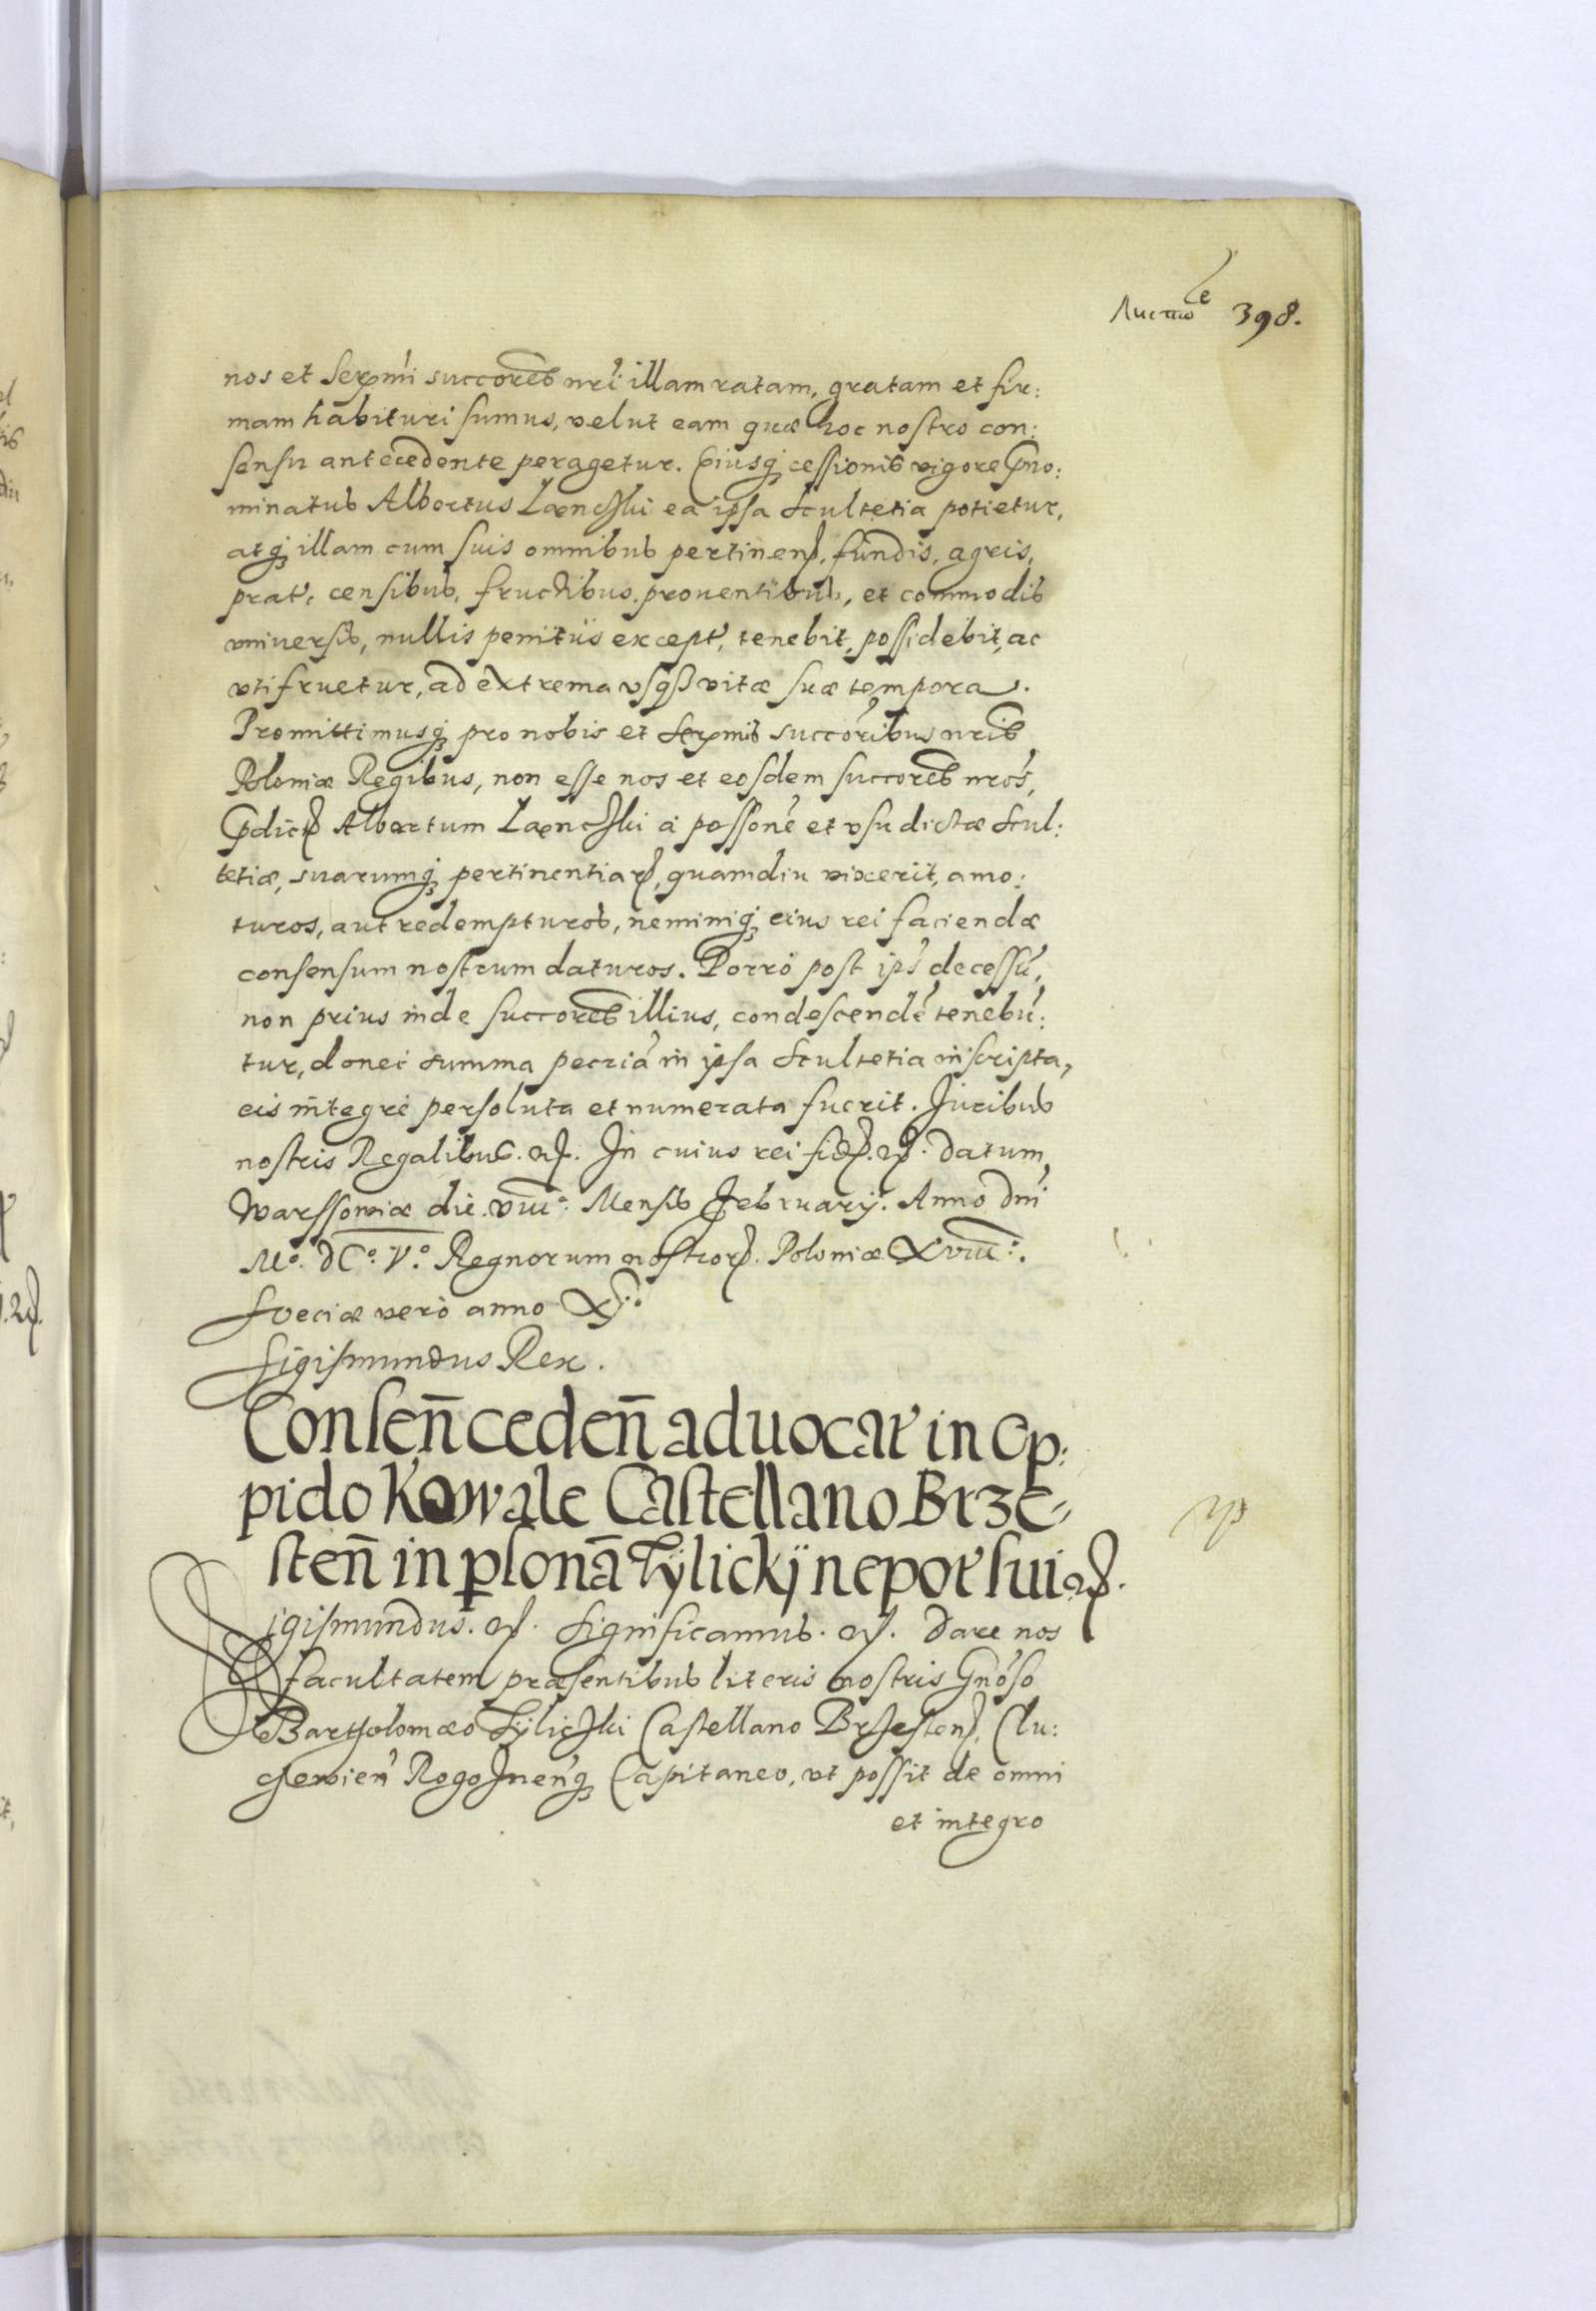 Листъ 398.
nos et Serẽmi succoreˢ nr̃i illam ratam, gratam et fir:
mam habituri sumus, velut eam quæ hoc nostro con:
sensu antecedente peragetur. Eiusqȝ cessionis vigore p̃no:
minatus Albertus Lænczki ea ipsa Scultetia potietur,
atqȝ illam cum suis omnibus pertinen̄, fundis, agris,
prat', censibus, fructibus, prouentibus, et commodis
vniuersis, nullis penitùs except', tenebit, possidebit, ac
vtifruetur, ad extrema vsqȝ vitæ suæ tempora.
Promittimusqȝ pro nobis et Serẽmis succõribus nr̃is
Poloniæ Regibus, non esse nos et eosdem succores nr̃os,
p̃dict̃ Albertum Lænczki à possonẽ et vsu dictæ Scul:
tetiæ, suarumqȝ pertinentiaꝝ, quamdiu vixerit, amo:
turos, aut redempturos, neminiqȝ eius rei faciendæ
consensum nostrum daturos. Porrò post ips' decessũ,
non prius inde succores illius, condescendẽ tenebũ:
tur, donec summa pecniã in ipsa Scultetia inscripta,
eis integrè persoluta et numerata fuerit. Iuribus
nostris Regalibus. ꝛc. In cuius rei fidẽ. ꝛc. Datum
Warssoviæ die. VIII.º Mensis February. Anno dñi
Mº. DCº. Vº. Regnorum nostroꝝ. Poloniæ XVIII.º
Sveciæ verò anno XI.º
Sigismundus Rex.
Consen̄ ceden̄ aduocat' in Op:
pido Kowale Castellano Brze-
sten̄ in ꝑsonã Tÿlickÿ nepot' sui ꝛc.
Sigismundus. ꝛc. Significamus. ꝛc. Dare nos
facultatem præsentibus literis nostris Gnõso
Bartholomæo Tÿliczki Castellano Brzesten̄, Clu:
czewien̄ Rogoznen̄qȝ Capitaneo, vt possit de omni
et integro